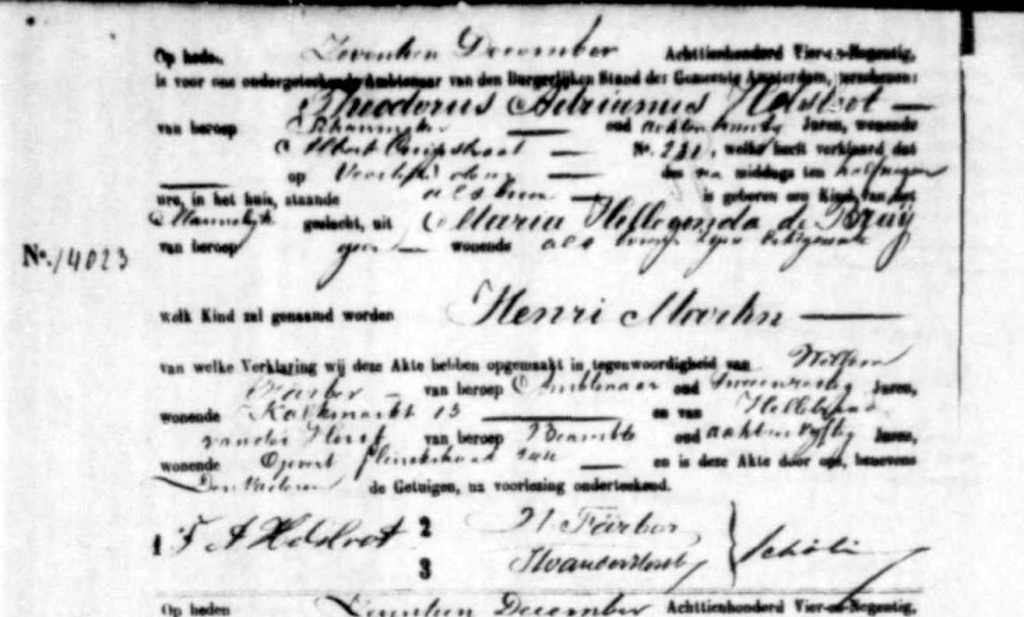 Op heden Zeventien December Achttienhonderd Vier-en-Negentig,
is voor ons ondergeteekende Ambtenaar van den Burgerlijken Stand der Gemeente Amsterdam, verschenen:
Theodorus Adrianus Holsloot
van beroep oud Jaren, wonende
Albert Cuijpstraat No. 231, welke heeft verklaard dat
op des na middags ten half negen
ure, in het huis, staande alshier is geboren een Kind, van het
Mannelijk geslacht, uit Maria Hillegonda de Bruij
van beroep geen wonende als
No. 14023
welk Kind zal genaamd worden Henri Martin
van welke Verklaring wij deze Akte hebben opgemaakt in tegenwoordigheid van Willem
Färber van beroep Ambtenaar oud Jaren,
wonende Kalkmarkt 13 en van
van der Horst van beroep Beambte oud achtenvijftig Jaren,
wonende Govert Flinckstraat en is deze Akte door ons, benevens
Den Vader en de Getuigen, na voorlezing onderteekend.
1 T A Holsloot 2 W. Färber
3 Hvanderhorst
Op heden Zeventien December Achttienhonderd Vier-en-Negentig,